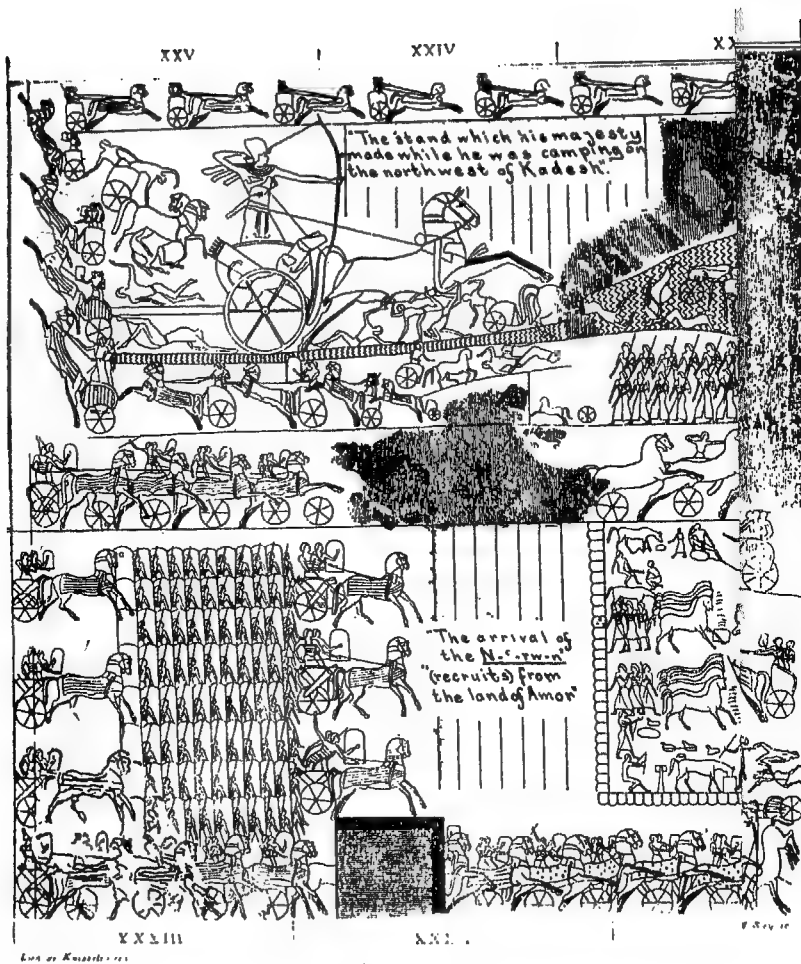 XXV
XXIV
"The stand which his majesty
made while he was camping on
the northwest of Kadesh".
"The arrival of
the N-ʿ-rw-n"
"(recruits) from
the land of Amor"
XXXIII